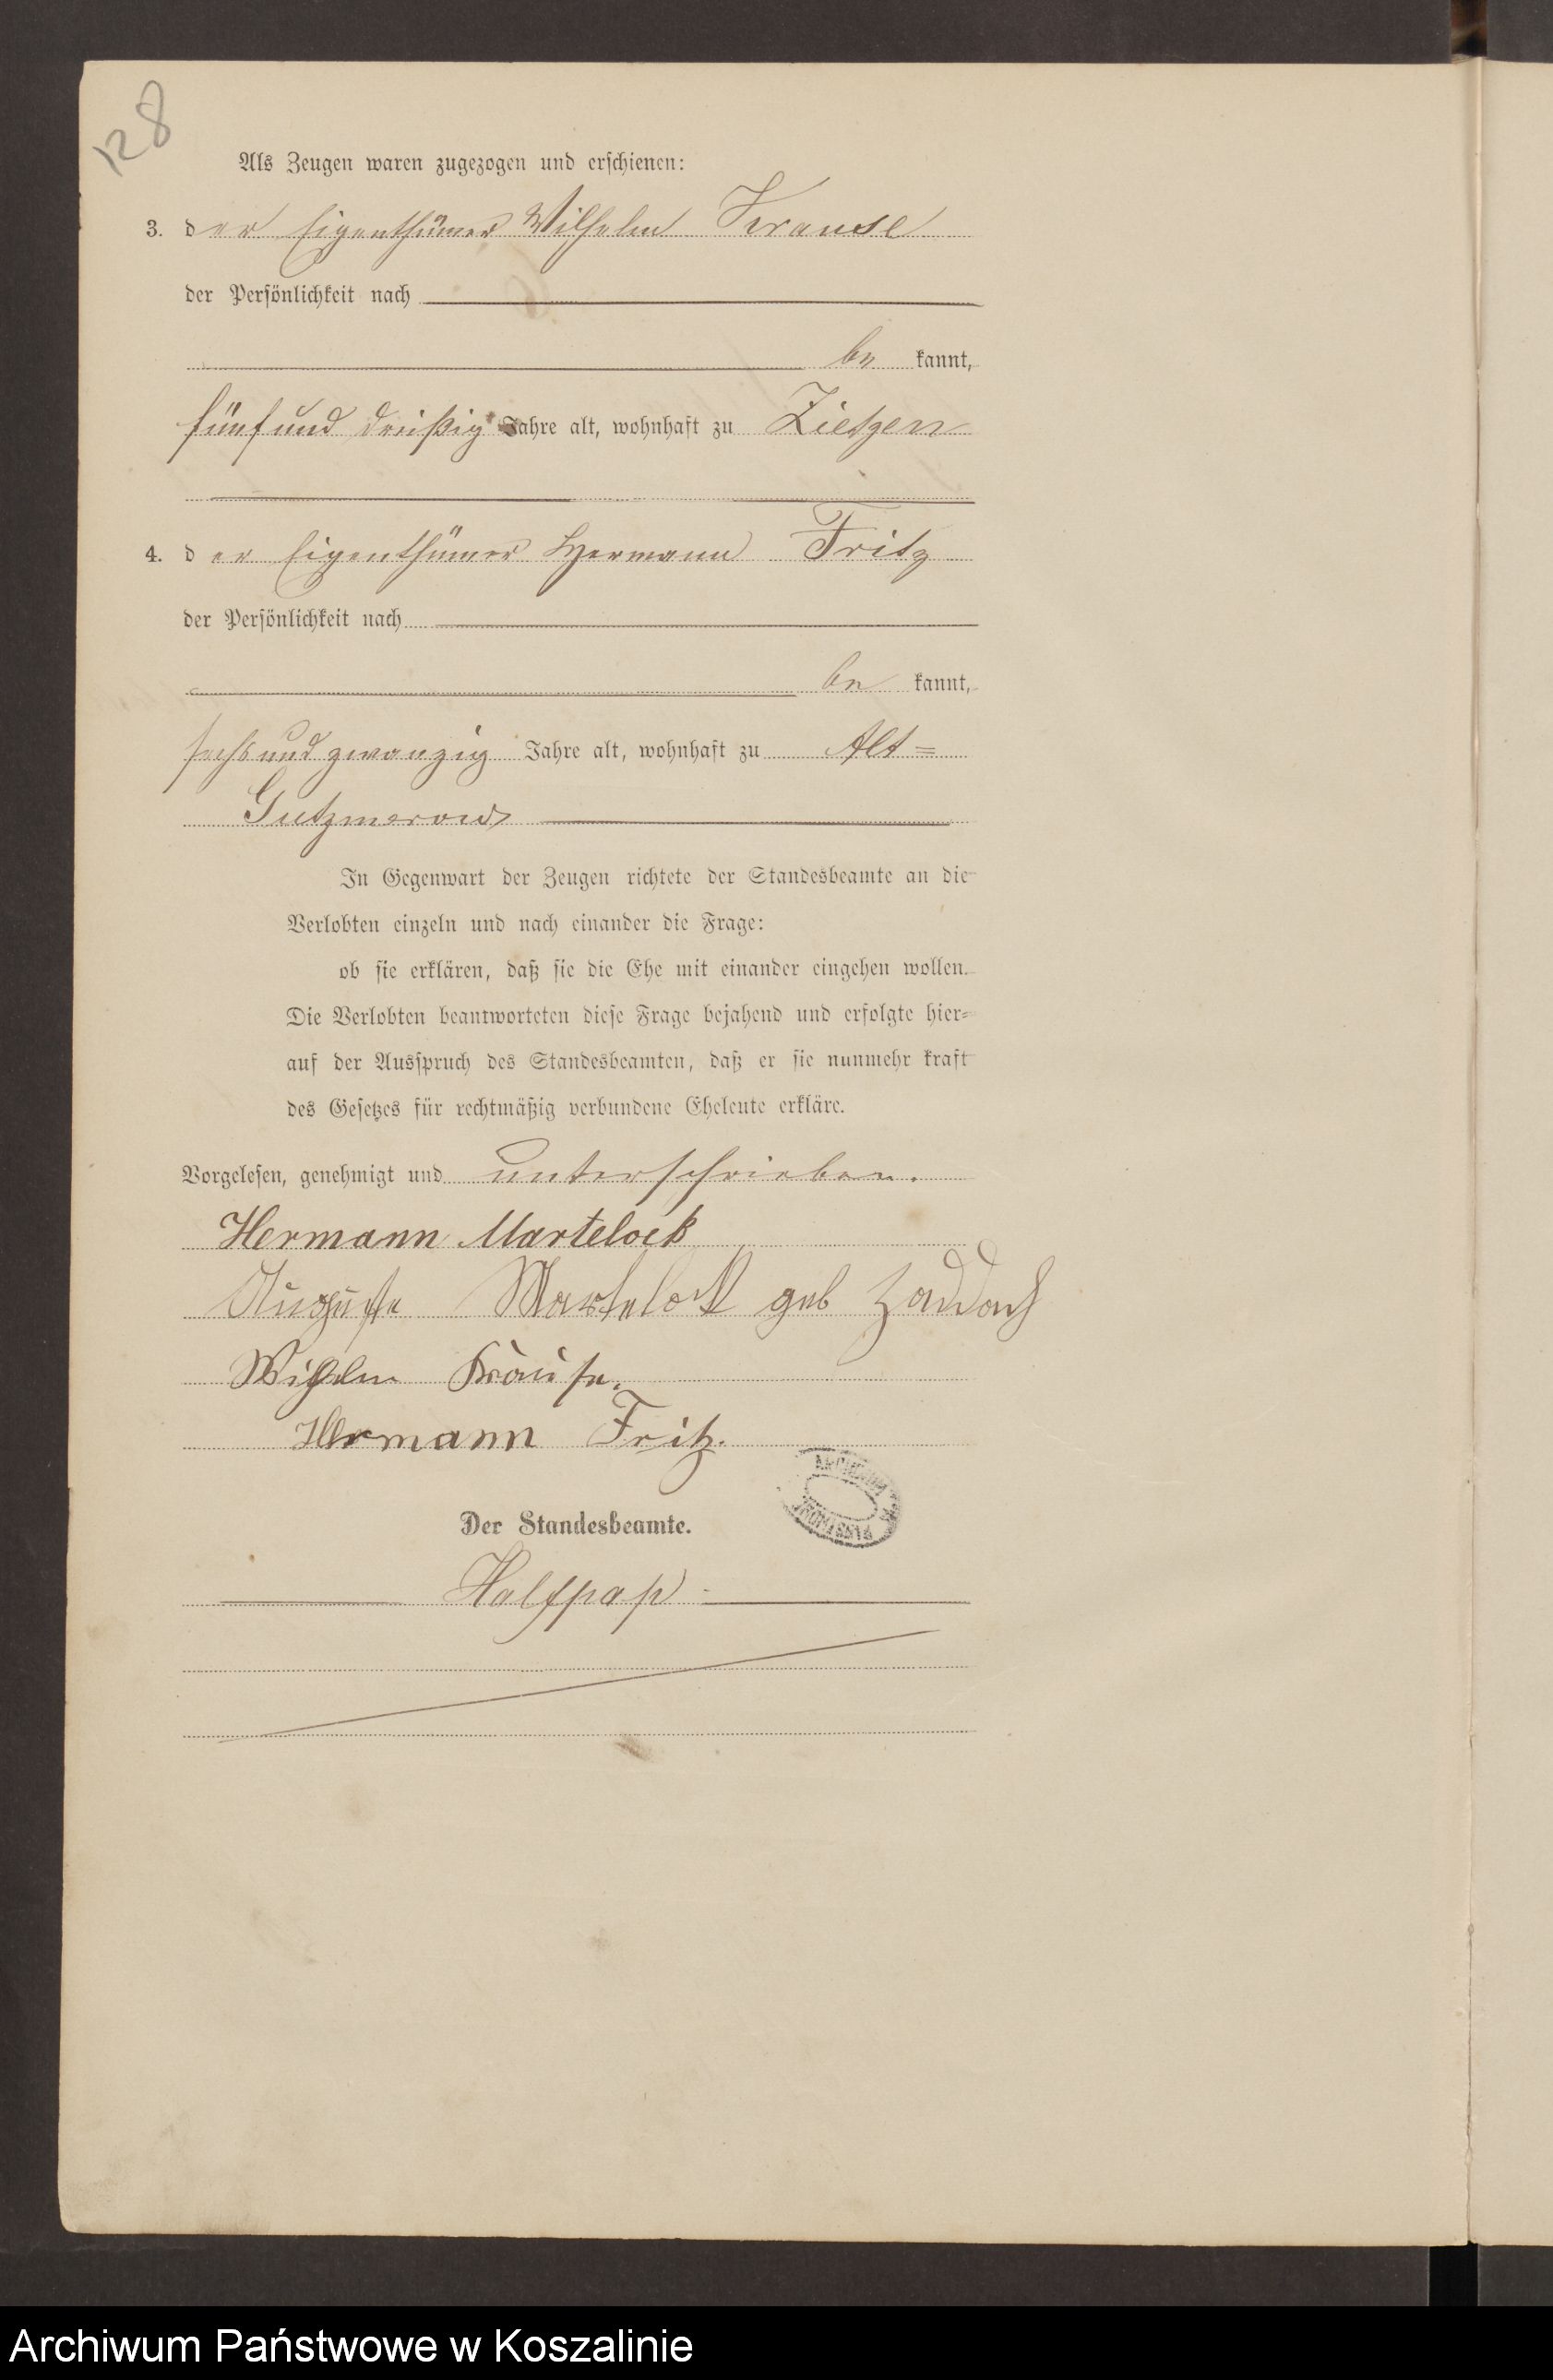 128
Als Zeugen waren zugezogen und erschienen:
3. der Eigenthümer Wilhelm Krause
der Persönlichkeit nach
be kannt,
fünfund dreißig Jahre alt, wohnhaft zu Zietzen
4. der Eigenthümer Hermann Fritz
der Persönlichkeit nach
be kannt,
sechsundzwanzig Jahre alt, wohnhaft zu Alt=
Gutzmerow
In Gegenwart der Zeugen richtete der Standesbeamte an die
Verlobten einzeln und nach einander die Frage:
ob sie erklären, daß sie die Ehe mit einander eingehen wollen.
Die Verlobten beantworteten diese Frage bejahend und erfolgte hier=
auf der Ausspruch des Standesbeamten, daß er sie nunmehr kraft
des Gesetzes für rechtmäßig verbundene Eheleute erkläre.
Vorgelesen, genehmigt und unterschrieben.
Hermann Martelock
Auguste Martelock geb Zaddach
Wilhelm Krause.
Hermann Fritz.
Der Standesbeamte.
Halfpap
Archiwum Państwowe w Koszalinie